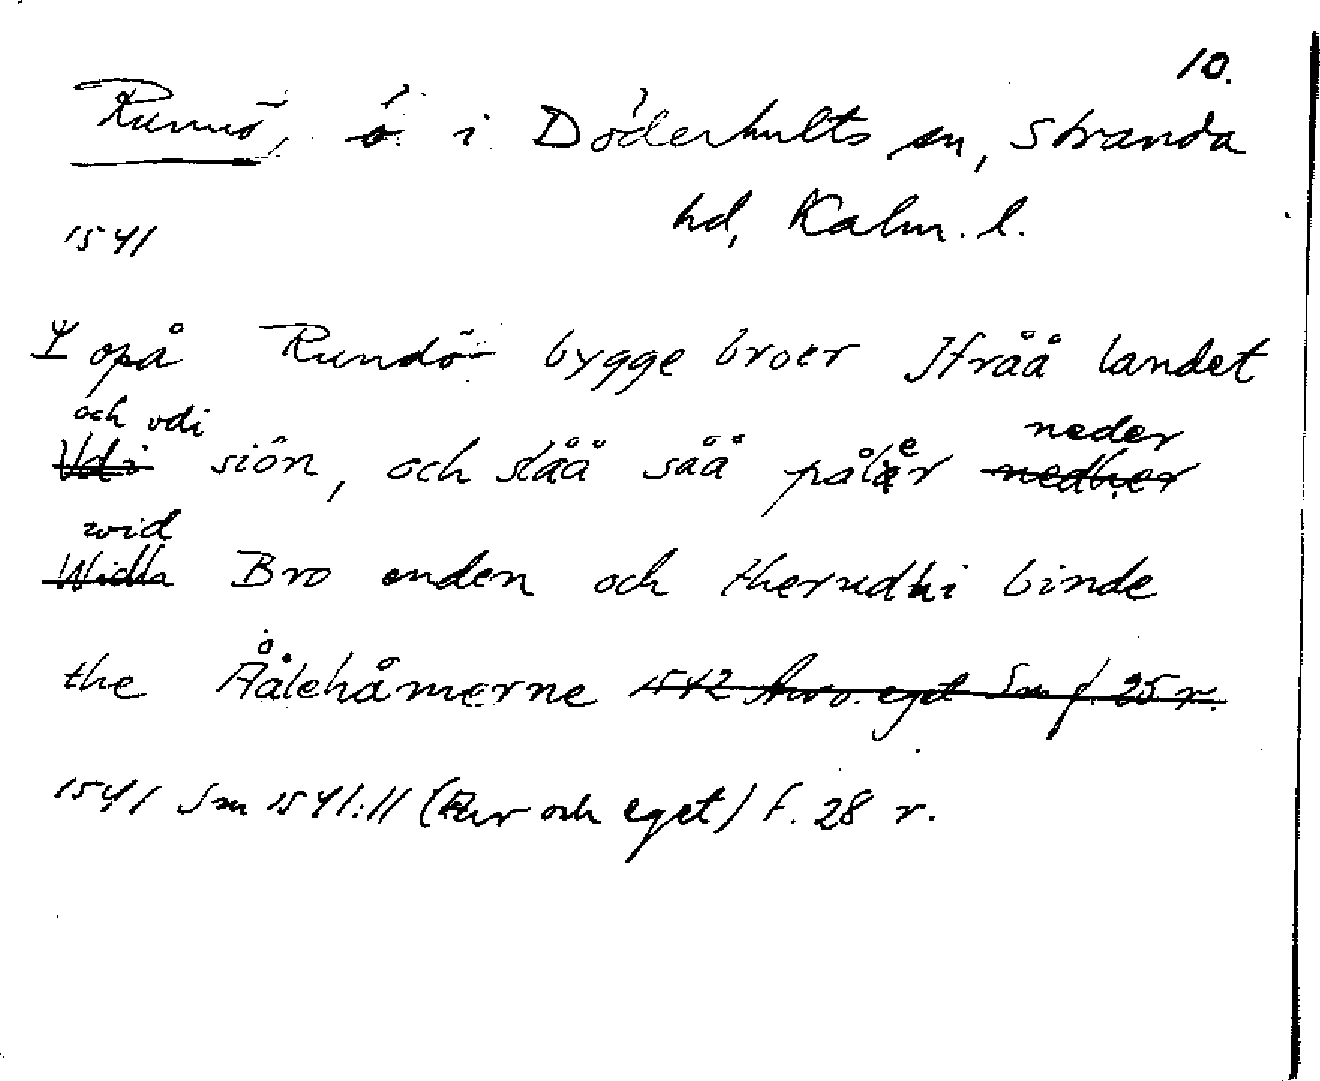 10.
Runnö, ö i Döderhults sn, Stranda
hd, Kalm. l.
1541
I opå Rundö bygge broer Ifråå landet
och vdi
Vdi siön, och slåå såå påler neder nedher
wid
Widh Bro enden och therudhi binde
the Åålehåmerne 1542 Avr o. eget Sm f. 25 r.
1541 Sm 1541:11 (Avr och eget) f. 28 r.